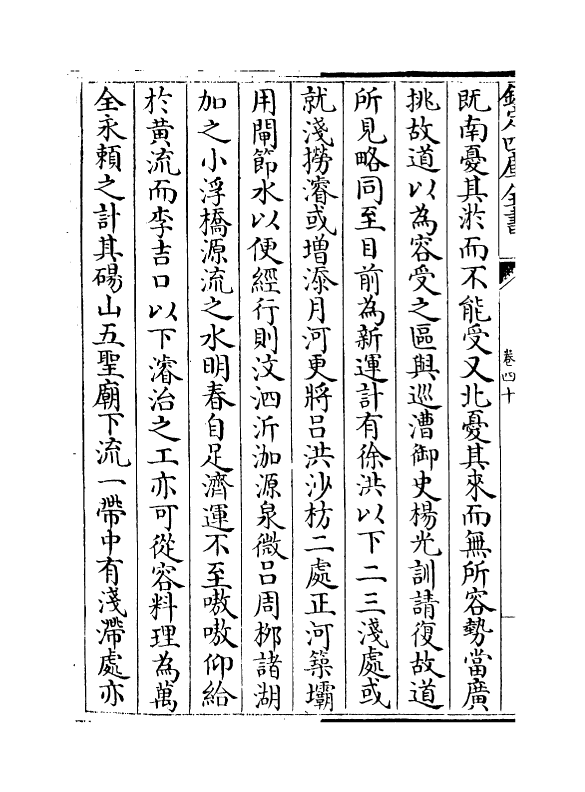 欽定四庫全書
卷四十
既南憂其淤而不能受又北憂其來而無所容勢當廣
挑故道以為容受之區與巡漕御史楊光訓請復故道
所見略同至目前為新運計有徐洪以下二三淺處或
就淺撈濬或増添月河更將吕洪沙枋二處正河築壩
用閘節水以便經行則汶泗沂泇源泉微吕周栁諸湖
加之小浮橋源流之水明春自足濟運不至嗷嗷仰給
於黄流而李吉口以下濬治之工亦可從容料理為萬
全永頼之計其碭山五聖廟下流一帶中有淺滯處亦